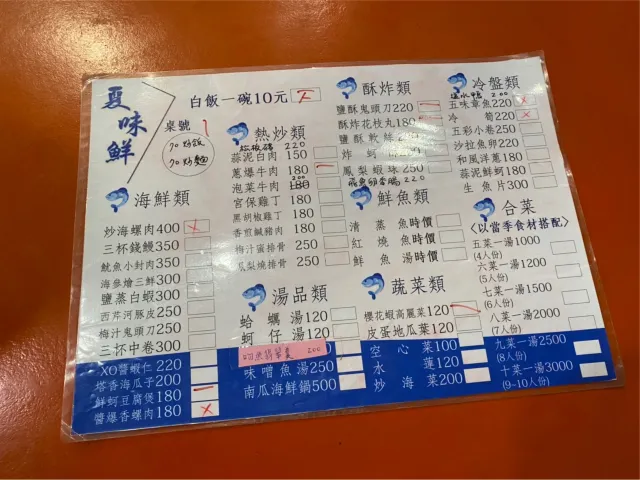 夏味鮮
白飯一碗10元
桌號 1
70炒飯
70炒麵
海鮮類
炒海螺肉400
三杯錢鰻350
魷魚小封肉350
海參燴三鮮300
鹽蒸白蝦300
西芹河豚皮250
梅汁鬼頭刀250
三杯中卷300
XO醬蝦仁 220
塔香海瓜子200
鮮蚵豆腐煲180
醬爆香螺肉180
熱炒類
220
蒜泥白肉 150
蔥爆牛肉 180
200
泡菜牛肉 180
宮保雞丁 180
黑胡椒雞丁 180
香煎鹹豬肉 180
梅汁蜜排骨 250
鳳梨燒排骨 250
湯品類
蛤蠣湯120
蚵仔湯120
200
味噌魚湯250
南瓜海鮮鍋500
酥炸類
鹽酥鬼頭刀220
酥炸花枝丸180
鹽酥軟絲
炸蚵
鳳梨蝦球250
飛魚卵香腸 220
鮮魚類
清蒸魚時價
紅燒魚時價
鮮魚湯時價
蔬菜類
櫻花蝦高麗菜120
皮蛋地瓜葉120
空心菜100
水蓮120
炒海菜200
冷盤類
200
五味章魚220
冷筍220
五彩小卷250
沙拉魚卵220
和風洋蔥180
蒜泥鮮蚵180
生魚片300
合菜
〈以當季食材搭配〉
五菜一湯1000
(4人份)
六菜一湯1200
(5人份)
七菜一湯1500
(6人份)
八菜一湯2000
(7人份)
九菜一湯2500
(8人份)
十菜一湯3000
(9~10人份)